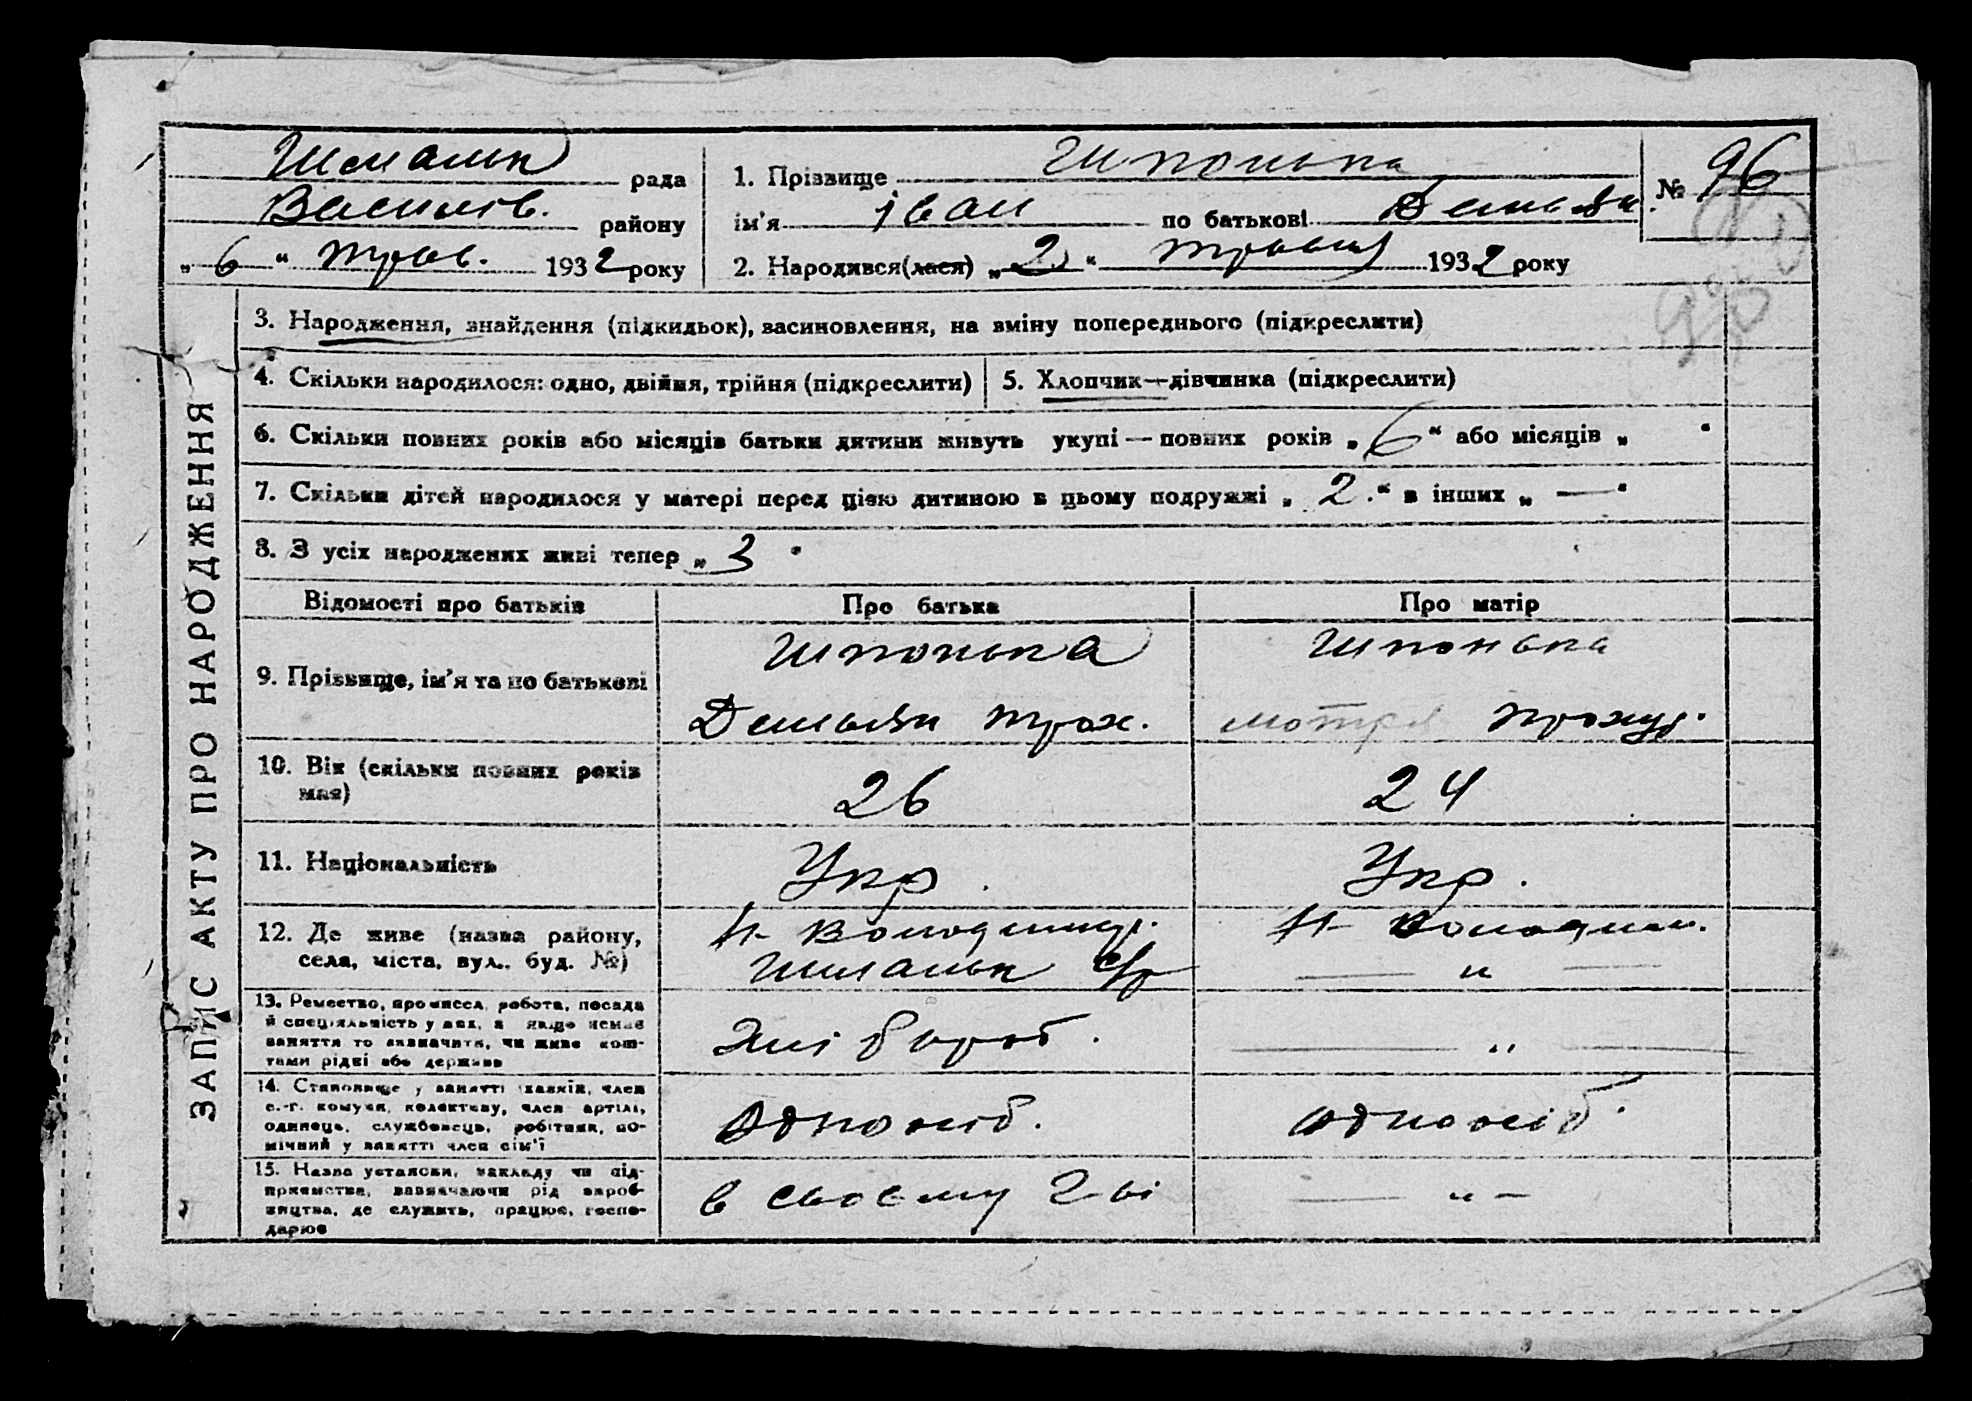 Шмальк рада
Василів. району
„ 6 “ трав. 1932 року
1. Прізвище Шпонька
ім'я Іван по батькові Демьян.
2. Народився(лася) „ 2 “ травня 1932 року
№ 96
ЗАПИС АКТУ ПРО НАРОДЖЕННЯ
3. Народження, знайдення (підкидьок), васиновлення, на вміну попереднього (підкреслити)
4. Скільки народилося: одно, двійня, трійня (підкреслити)
5. Хлопчик—дівчинка (підкреслити)
6. Скільки повних років або місяців батьки дитини живуть укупі — повних років „ 6 “ або місяців „ “
7. Скільки дітей народилося у матері перед цією дитиною в цьому подружжі „ 2. “ в інших „ — “
8. З усіх народжених живі тепер „ 3 “
Відомості про батьків
Про батька
Про матір
9. Прізвище, ім'я та по батькові
Шпонька
Демьян Трох.
Шпонька
Мотря
10. Вік (скільки повних років
мав)
26
24
11. Національність
Укр.
Укр.
12. Де живе (назва району,
села, міста, вул., буд. №)
Н- Володимир.
Шмальк с/р
Н- Володим.
— „ —
13. Ремество, промисел, робота, посада
й спеціяльність у них, а якщо немає
заняття то визначити, чи живе кош-
тами рідні або держави
Хлібороб.
— „ —
14. Становище у занятті: хазяїн, член
с.-г. комуни, колективу, член артілі,
одинець, службовець, робітник, по-
мічний у занятті член сім'ї
Одноосіб.
одноосіб.
15. Назва установи, закладу чи під-
приємства, зазначаючи рід вироб-
ництва, де служить, працює, госпо-
дарює
в своєму г-ві
— „ —